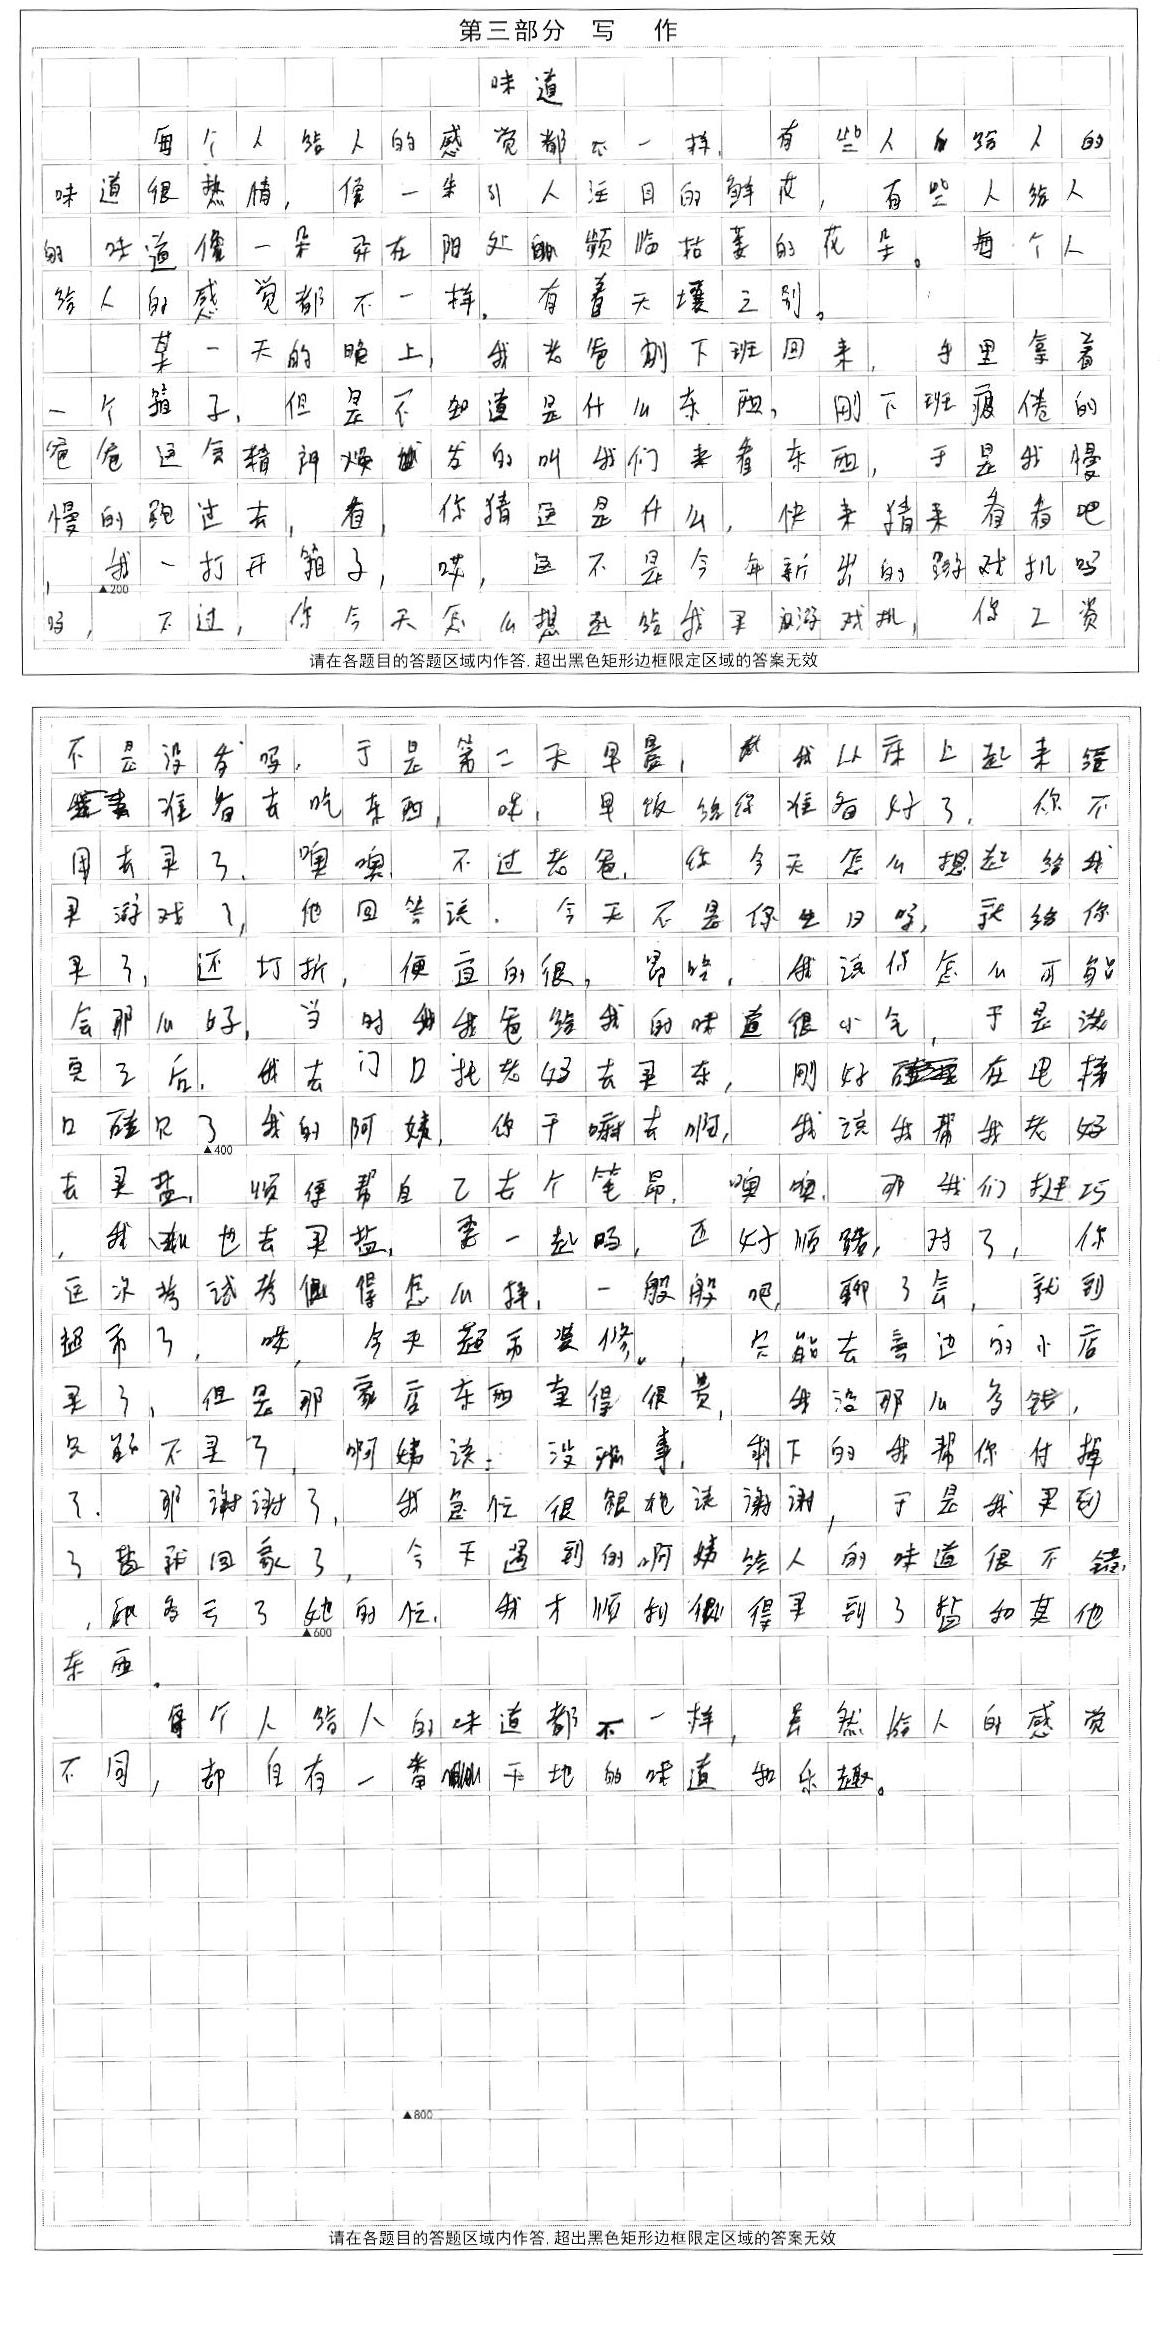 第三部分 写 作
味道
每个人给人的感觉都不一样，有些人给人的
味道很热情，像一朵引人注目的鲜花，有些人给人
的味道像一朵弃在阳处频临枯萎的花朵。每个人
给人的感觉都不一样，有着天壤之别。
某一天的晚上，我老爸刚下班回来，手里拿着
一个箱子，但是不知道是什么东西，刚下班疲倦的
爸爸这会精神焕发的叫我们来看东西，于是我慢
慢的跑过去，看，你猜这是什么，快来猜来看看吧
，我一打开箱子，哎，这不是今年新出的游戏机吗
▲200
吗，不过，你今天怎么想起给我买游戏机，你工资
请在各题目的答题区域内作答，超出黑色矩形边框限定区域的答案无效
不是没发吗，于是第二天早晨，我从床上起来
准备去吃东西，咦，早饭给你准备好了，你不
用去买了，噢噢，不过老爸，你今天怎么想起给我
买游戏了，他回答说，今天不是你生日吗，就给你
买了，还打折，便宜的很，我说你怎么可能
会那么好，当时我爸给我的味道很小气，于是洗
完之后，我去门口托老妈去买东，刚好在电梯
口碰见了我的阿姨，你干嘛去啊，我说我帮我老妈
▲400
去买盐，顺便帮自己去个笔昂，噢噢，那我们挺巧
，我也去买盐，要一起吗，还好顺路，对了，你
这次考试考得怎么样，一般般吧，聊了会，就到
超市了，哎，今天超市装修。，只能去旁边的小店
买了，但是那家店东西卖得很贵，我没那么多钱，
只能不买了，啊姨说：没事，剩下的我帮你付掉
了．那谢谢了，我急忙很狼地说谢谢，于是我买到
了盐就回家了，今天遇到的啊姨给人的味道很不错，
，多亏了她的忙，我才顺利得买到了盐和其他
▲600
东西．
每个人给人的味道都不一样，虽然给人的感觉
不同，却自有一番天地的味道和乐趣。
▲800
请在各题目的答题区域内作答，超出黑色矩形边框限定区域的答案无效